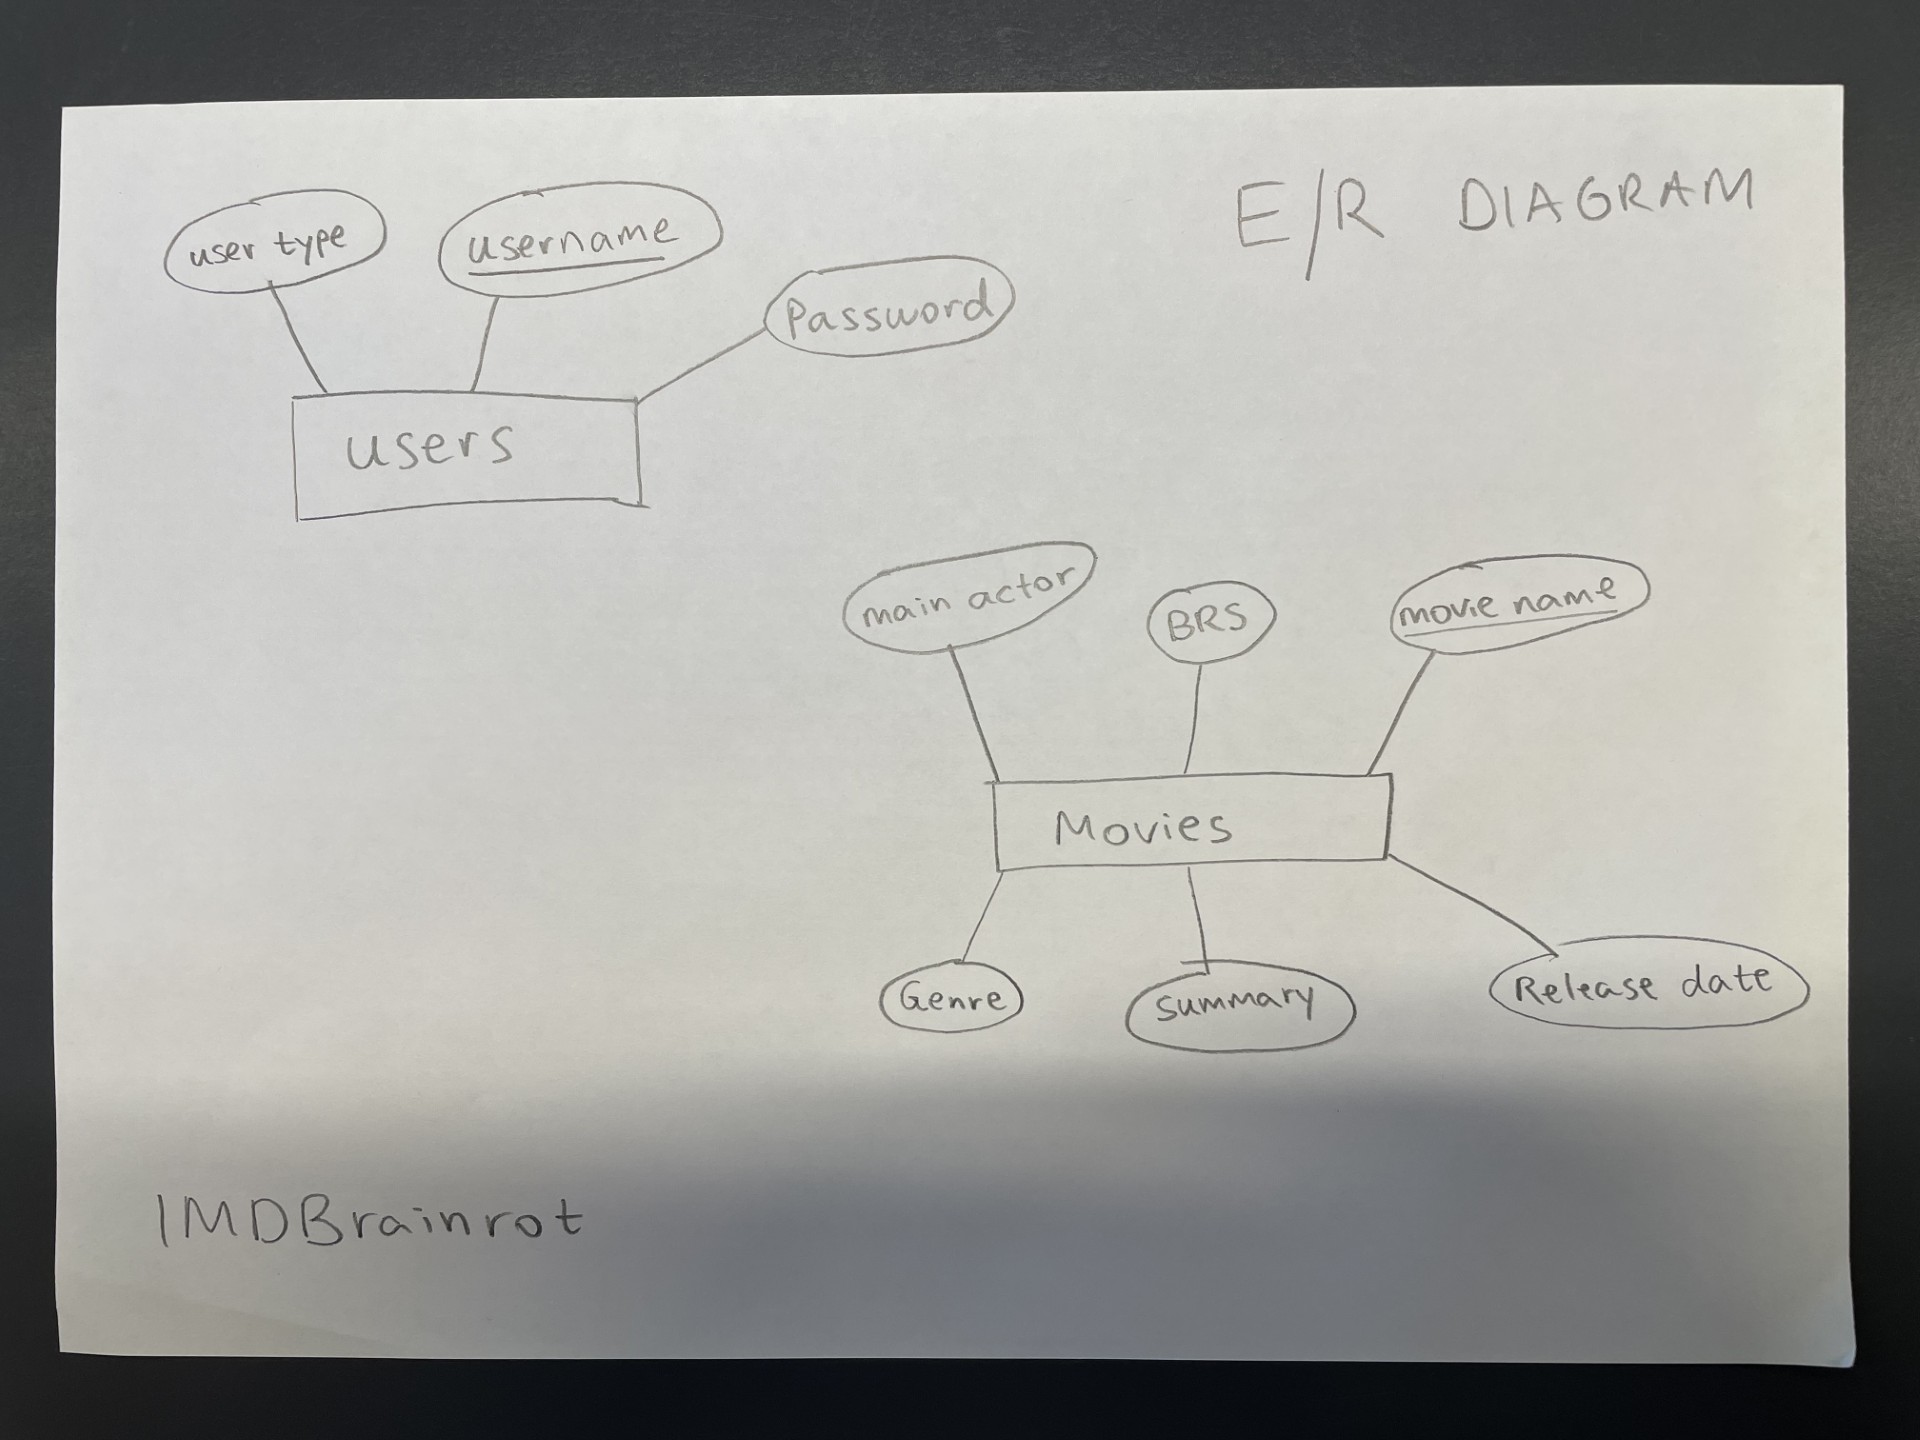 E/R DIAGRAM
user type
username
Password
users
main actor
BRS
movie name
Movies
Genre
summary
Release date
IMDBrainrot